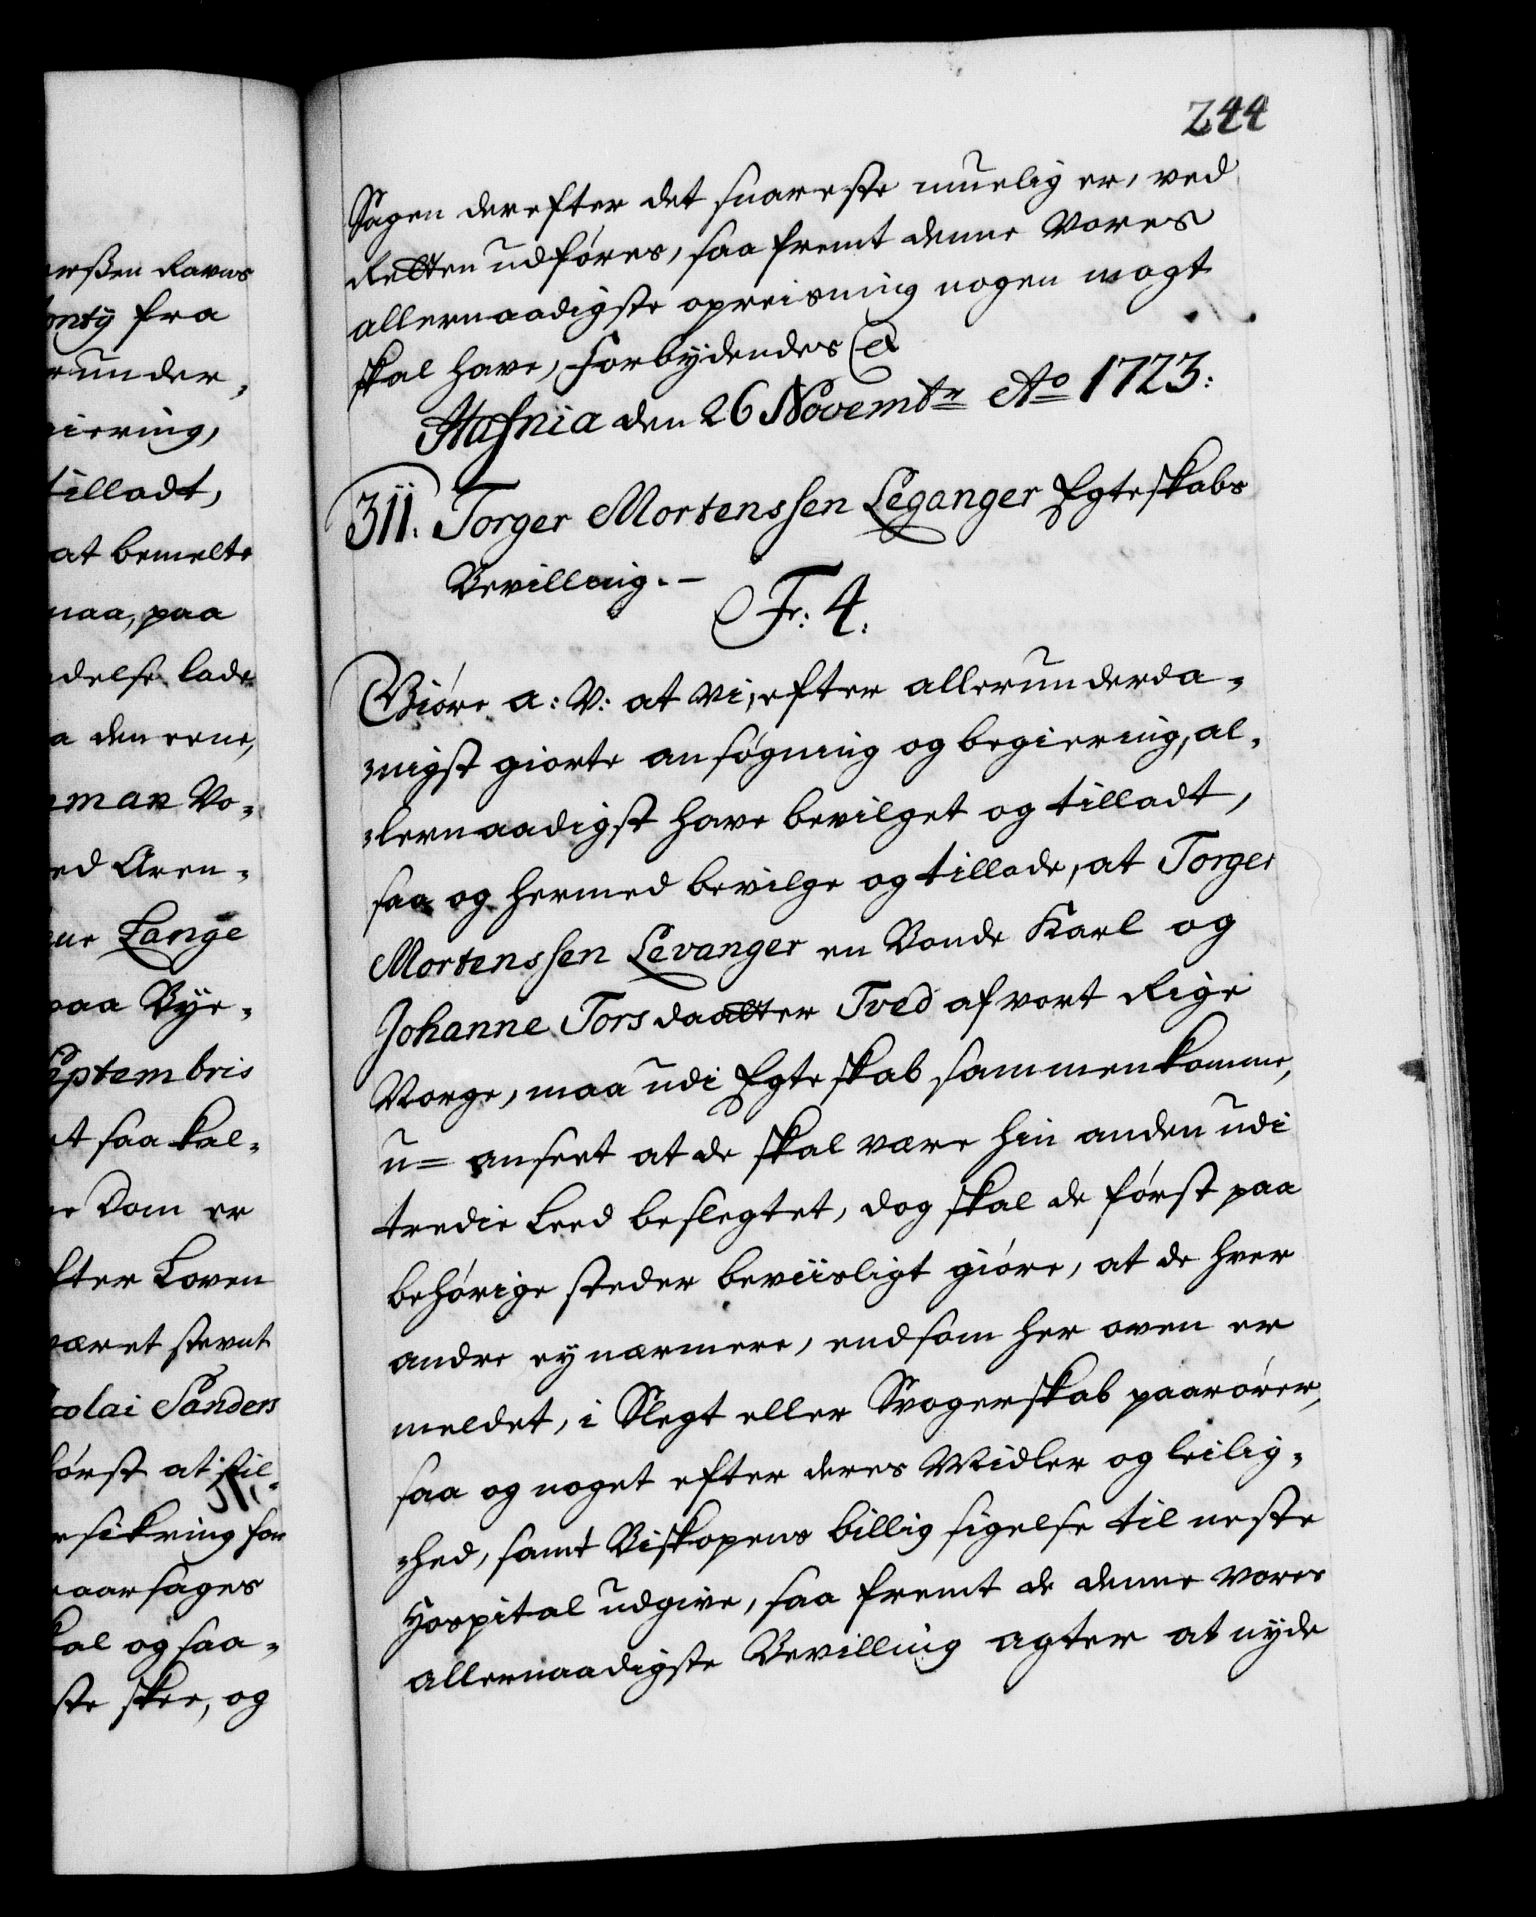 244
Sagen derefter det snareste muelig er, ved
Retten udføres, saa fremt denne Vores
allernaadigste opreisning nogen magt
skal have, Forbydendes &
Hafnia den 26 Novembr Ao 1723:
311. Torger Mortenssen Leganger Egteskabs
Bevilling. -
Fr: 4.
Giøre a: V: at vi, efter allerunderda-
nigst giorte ansøgning og begiering, al-
lernaadigst have bevilget og tilladt,
saa og hermed bevilge og tillade, at Torger
Mortenssen Levanger en Bonde Karl og
Johanne Torsdaatter Tved af vort Rige
Norge, maa udi Egteskab sammenkomme,
u= anseet at de skal være hin anden udi
tredie Leed beslegtet, dog skal de først paa
behørige steder beviisligt giøre, at de hver
andre ey nærmere, end som her oven er
meldet, i Slegt eller Svogerskab paarører,
saa og noget efter deres Midler og leilig-
hed, samt Biskopens billig sigelse til neste
Hospital udgive, saa fremt de denne vores
allernaadigste Bevilling agter at nyde
erßen Ravns
fra
under,
iering,
tilladt,
at bemelte
maa, paa
delse lade
a den eene,
man Vo-
ed Aren-
Lange
paa Bye-
Septembris
at saa kal-
e Dom er
fter Loven
været stevnt
colai Sanders
først at stil-
sikring for
saarsages
kal og saa-
ste skee, og